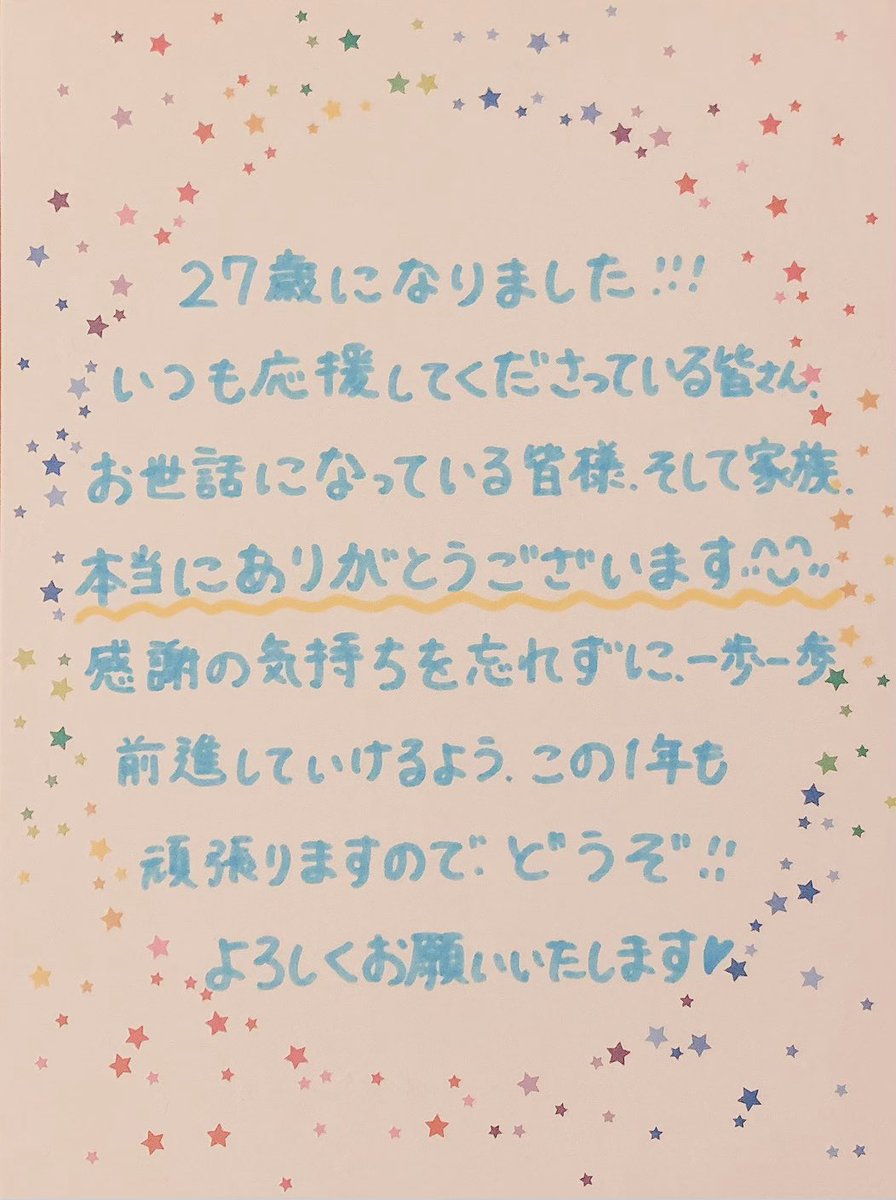 27歳になりました!!!
いつも応援してくださっている皆さん、
お世話になっている皆様、そして家族、
本当にありがとうございます
感謝の気持ちを忘れずに、一歩一歩
前進していけるよう、この1年も
頑張りますので、どうぞ!!
よろしくお願いいたします♥